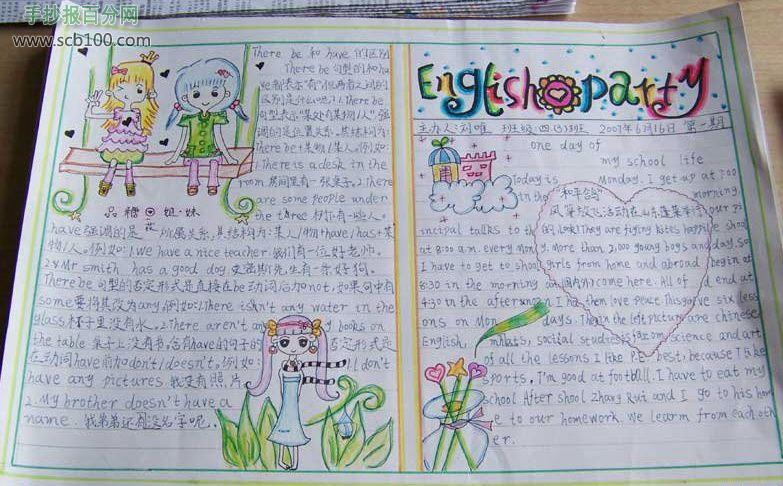 手抄报百分网
www.scb100.com
There be 和 have 的区别
There be 句型的和ha
ve都表示“有”但两者之间的
区别是什么呢?1.There be
句型表示“某处有某物/人”强
调的是位置关系,其结构为:
There be+某物/人。例如:
1.There is a desk in the
room 房间里有一张桌子。2.There
are some people under
the tree 树下有一些人。
品糖 姐·妹
花
have强调的是 所属关系,其结构为:某人/物+have/has+某
物/人。例如:1.We have a nice teacher 我们有一位好老师。
2.Mr smith has a good dog 史密斯先生有一条好狗。
There be 句型的否定形式是直接在be动词后加not,如果句中有
some要将其改为any,例如:1.There isn't any water in the
glass 杯子里没有水。2.There aren't any books on
the table 桌子上没有书。含有have的句子的 否定形式是
在动词have前加don't/doesn't。例如: 1.I don't
have any pictures 我没有照片
2.My brother doesn't have a
name. 我弟弟还没名字呢。
English party
主办人:刘唯 班级:四(3)班 2007年6月16日 第一期
one day of
my school life
Today is Monday. I get up at 7:00
in the "和平台鸟" morning.
风筝放飞活动在山东蓬莱举行 our pr
incipal talks to They are flying kites happily school
at 8:00 a.m. every Monday. More than 2,000 young boys and day. So
I have to get to school girls from home and abroad begin at
8:30 in the morning come here. All of end at
4:30 in the afternoon. I love peace. six less
ons on Mondays. in the left picture are chinese
English, maths, social studies science and art
of all the lessons I like P.E best, because I like
sports, I'm good at football. I have to eat my
school After shool Zhang Rui and I go to his hom
e to our homework. We learm from each oth
er.